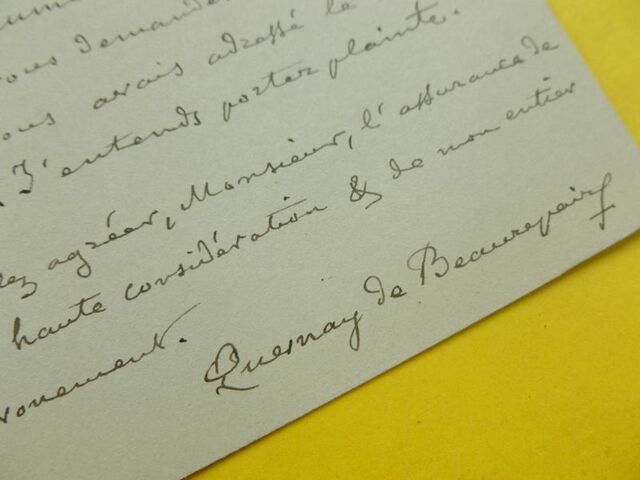 vous demander
vous avais adressé le
J'entends porter plainte.
agréer, Monsieur, l'assurance de
haute considération & de mon entier
Quesnay de Beaurepaire